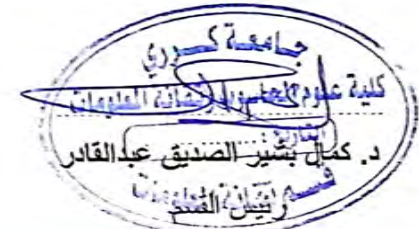 جامعة كسرى
كلية علوم الحاسوب وتقانة المعلومات
التاريخ:
د. كمال بشير الصديق عبدالقادر
قسم تقانة المعلومات
رئيس القسم